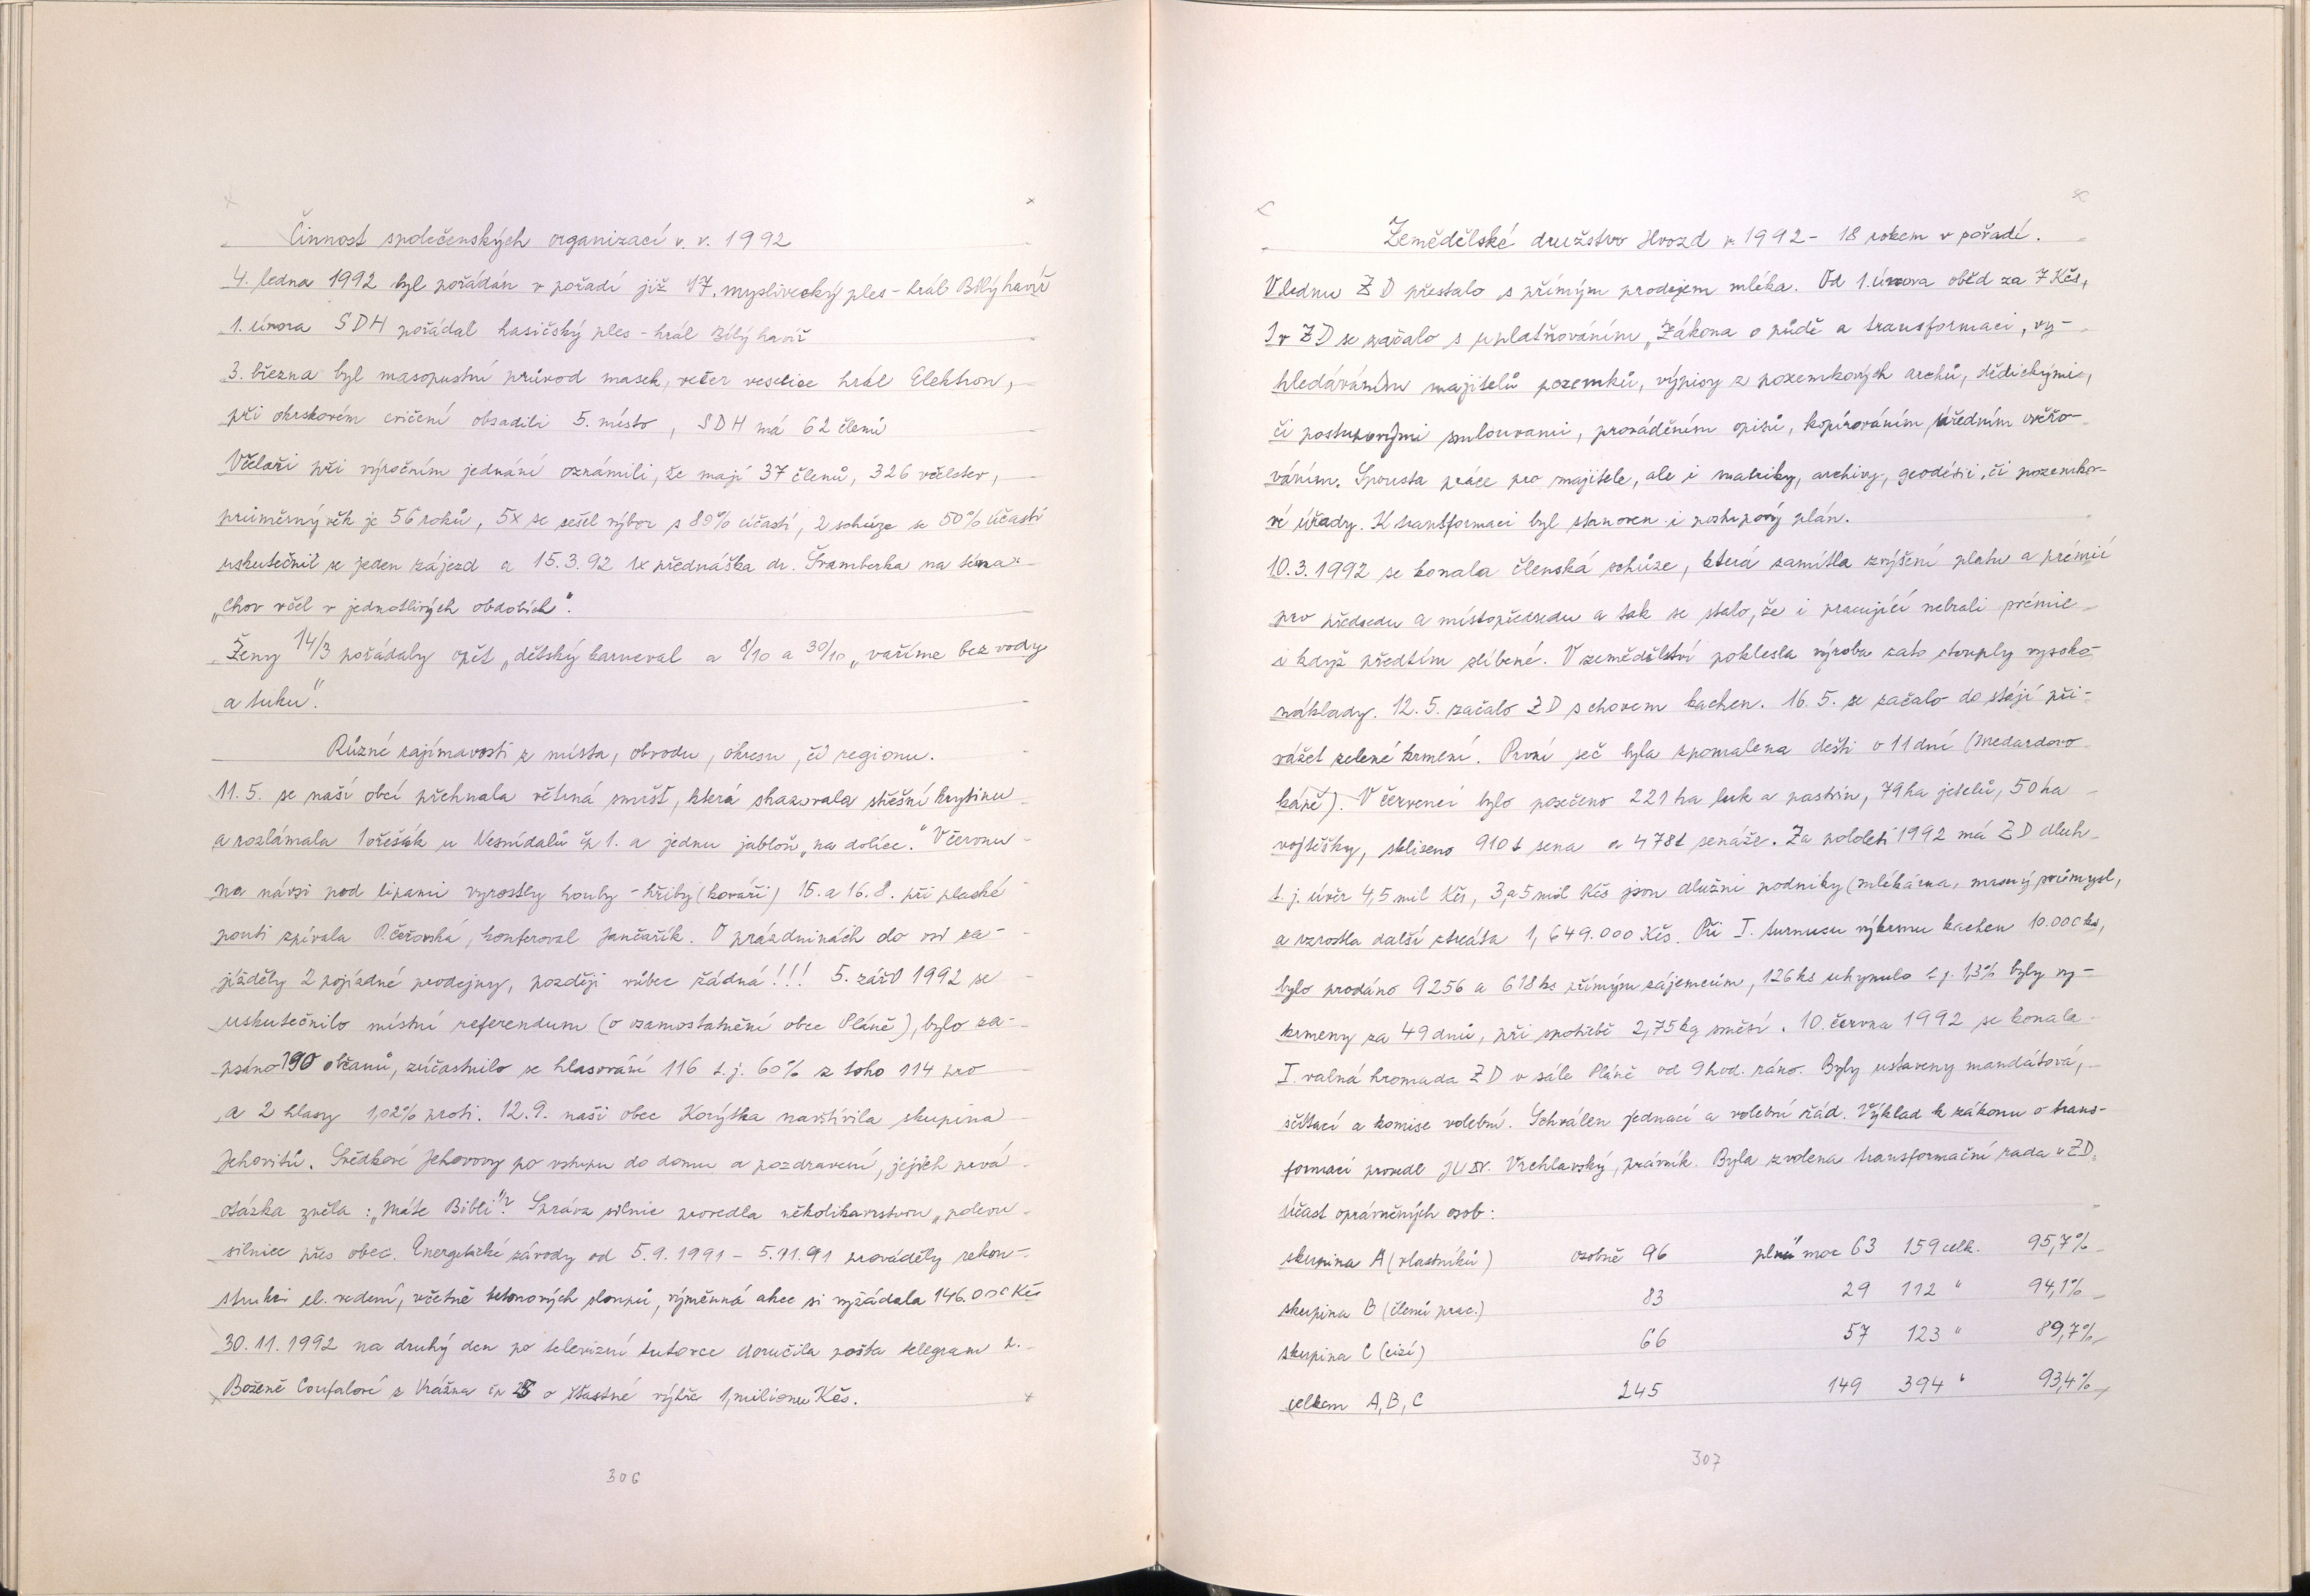 Činnost společenských organizací v. r. 1992
4. ledna 1992 byl pořádán v pořadí již 17. myslivecký ples - hrál Bílý havíř
1. února SDH pořádal hasičský ples - hrál Bílý havíř
3. března byl masopustní průvod masek, večer veselice hrál Elektron,
při okrskovém cvičení obsadili 5. místo, SDH má 62 členů
Včelaři při výročním jednání oznámili, že mají 37 členů, 326 včelstev,
průměrný věk je 56 roků, 5x se sešel výbor s 89% účastí, 2 schůze se 50% účastí
uskutečnil se jeden zájezd a 15.3.92 1x přednáška dr. Šramberka na téma
„Chov včel v jednotlivých obdobích".
Ženy 14/3 pořádaly opět „dětský karneval a 8/10 a 30/10 „vaříme bez vody
a tuku".
Různé zajímavosti z místa, obvodu, okresu, či regionu.
11.5. se naší obcí přehnala větrná smršť, která shazovala střešní krytinu
a rozlámala 1 ořešák u Nesnídalů čp 1. a jednu jabloň „na dolíce." V červnu
na návsi pod lipami vyrostly houby - hřiby (kováři) 15. a 16.8. při plaské
pouti zpívala P. Čeřovská, konferoval Jančařík. O prázdninách do vsi za-
jížděly 2 pojízdné prodejny, později vůbec žádná!!! 5. září 1992 se
uskutečnilo místní referendum (o osamostatnění obce Pláně), bylo za-
psáno 190 občanů, zúčastnilo se hlasování 116 t.j. 60% z toho 114 pro
a 2 hlasy 1,02% proti. 12.9. naši obec Korýtka navštívila skupina
Jehovitů. Svědkové Jehovovy po vstupu do domu a pozdravení, jejich prvá
otázka zněla: „Máte Bibli"? Správa silnic provedla několikavrstvou „polevu
silnice přes obec. Energetické závody od 5.9.1991 - 5.11.91 prováděly rekon-
strukci el. vedení, včetně betonových sloupů, výměnná akce si vyžádala 146.000 Kčs
30.11.1992 na druhý den po televizní tutovce doručila pošta telegram
Boženě Coufalové z Vrážna čp o šťastné výhře 1, milionu Kčs.
306
Zemědělské družstvo Hvozd v 1992 - 18 rokem v pořadí.
V lednu ZD přestalo s přímým prodejem mléka. Od 1. února oběd za 7 Kčs,
I v ZD se začalo s uplatňováním „Zákona o půdě a transformaci, vy-
hledáváním majitelů pozemků, výpisy z pozemkových archů, dědickými,
či postupovými smlouvami, prováděním opisů, kopírováním, úředním ověřo-
váním. Spousta práce pro majitele, ale i matriky, archivy, geodézii, či pozemko-
vé úřady. K transformaci byl stanoven i postupový plán.
10.3.1992 se konala členská schůze, která zamítla zvýšení platu a prémií
pro předsedu a místopředsedu a tak se stalo, že i pracující nebrali prémie
i když předtím slíbené. V zemědělství poklesla výroba zato stouply vysoko
náklady. 12.5. začalo ZD s chovem kachen. 16.5. se začalo do stájí při-
vážet zelené krmení. První seč byla zpomalena dešti o 11 dní (Medardovo
kápě). V červenci bylo posečeno 221 ha luk a pastvin, 79 ha jetelů, 50 ha
vojtěšky, sklizeno 910 t sena a 478 t senáže. Za pololetí 1992 má ZD dluh
t.j. úvěr 4,5 mil Kčs, 3,5 mil Kčs jsou dlužni podniky (mlékárna, masný průmysl,
a vzrostla další ztráta 1,649.000 Kčs. Při I. turnusu výkrmu kachen 10.000 ks,
bylo prodáno 9256 a 618 ks přímým zájemcům, 126 ks uhynulo t.j. 1,3% byly vy-
krmeny za 49 dnů, při spotřebě 2,75 kg směsi. 10. června 1992 se konala
I. valná hromada ZD v sále Pláně od 9 hod. ráno. Byly ustaveny mandátová,
sčítací a komise volební. Schválen jednací a volební řád. Výklad k zákonu o trans-
formaci provedl JUDr. Vrchlavský, právník. Byla zvolena transformační rada v ZD.
Účast oprávněných osob:
skupina A (vlastníků) osobně 96 plná moc 63 159 celk. 95,7%
skupina B (členů prac.) 83 29 112 " 94,1%
skupina C (cizí) 66 57 123 " 89,7%
celkem A, B, C 245 149 394 " 93,4%
307